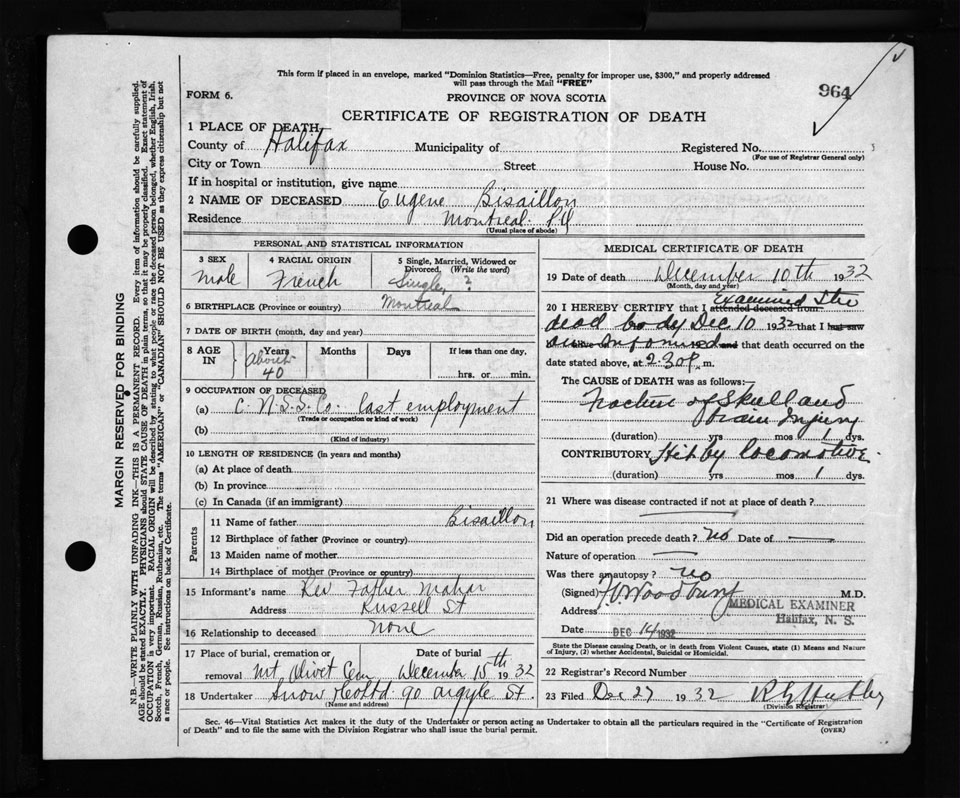 This form if placed in an envelope, marked "Dominion Statistics—Free, penalty for improper use, $300," and properly addressed
will pass through the Mail "FREE"
964
FORM 6.
PROVINCE OF NOVA SCOTIA
CERTIFICATE OF REGISTRATION OF DEATH
1 PLACE OF DEATH
County of Halifax Municipality of Registered No.
(For use of Registrar General only)
City or Town Street House No.
If in hospital or institution, give name
2 NAME OF DECEASED Eugene Bisaillon
Residence Montreal P.Q
(Usual place of abode)
PERSONAL AND STATISTICAL INFORMATION
3 SEX
Male
4 RACIAL ORIGIN
French
5 Single, Married, Widowed or
Divorced. (Write the word)
Single ?
6 BIRTHPLACE (Province or country) Montreal
7 DATE OF BIRTH (month, day and year)
8 AGE IN
Years Months Days If less than one day,
about 40
hrs. or min.
9 OCCUPATION OF DECEASED
(a) C.N.S.S. Co. last employment
(Trade or occupation or kind of work)
(b)
(Kind of industry)
10 LENGTH OF RESIDENCE (in years and months)
(a) At place of death
(b) In province
(c) In Canada (if an immigrant)
Parents
11 Name of father Bisaillon
12 Birthplace of father (Province or country)
13 Maiden name of mother
14 Birthplace of mother (Province or country)
15 Informant's name Rev Father Mahar
Address Russell St
16 Relationship to deceased none
17 Place of burial, cremation or Date of burial
removal Mt Olivet Cem December 15th 1932
18 Undertaker Snow & Co Ltd 90 Argyle St.
(Name and address)
MEDICAL CERTIFICATE OF DEATH
19 Date of death December 10th 1932
(Month, day and year)
20 I HEREBY CERTIFY that I attended deceased from Examined the
dead body Dec 10 1932 that I last saw
am informed and that death occurred on the
date stated above, at 2.30 P. m.
The CAUSE of DEATH was as follows:
Fracture of Skull and
brain Injury
(duration) yrs mos 1 dys.
CONTRIBUTORY Hit by locomotive.
(duration) yrs mos 1 dys.
21 Where was disease contracted if not at place of death?
Did an operation precede death? no Date of
Nature of operation
Was there an autopsy? no
(Signed) Woodbury M.D.
Address MEDICAL EXAMINER
Halifax, N. S.
Date DEC 14 1932
State the Disease causing Death, or in death from Violent Causes, state (1) Means and Nature
of Injury, (2) whether Accidental, Suicidal or Homicidal.
22 Registrar's Record Number
23 Filed Dec 27 1932
(Division Registrar)
Sec. 46—Vital Statistics Act makes it the duty of the Undertaker or person acting as Undertaker to obtain all the particulars required in the "Certificate of Registration
of Death" and to file the same with the Division Registrar who shall issue the burial permit. (OVER)
MARGIN RESERVED FOR BINDING
N.B.—WRITE PLAINLY WITH UNFADING INK—THIS IS A PERMANENT RECORD. Every item of information should be carefully supplied.
AGE should be stated EXACTLY. PHYSICIANS should STATE CAUSE OF DEATH in plain terms, so that it may be properly classified. Exact statement of
OCCUPATION is very important. RACIAL ORIGIN will be described by stating to what people or race the deceased person belonged, whether English, Irish,
Scotch, French, German, Russian, Ruthenian, etc. The terms "AMERICAN" or "CANADIAN" SHOULD NOT BE USED as they express citizenship but not
a race or people. See instructions on back of Certificate.